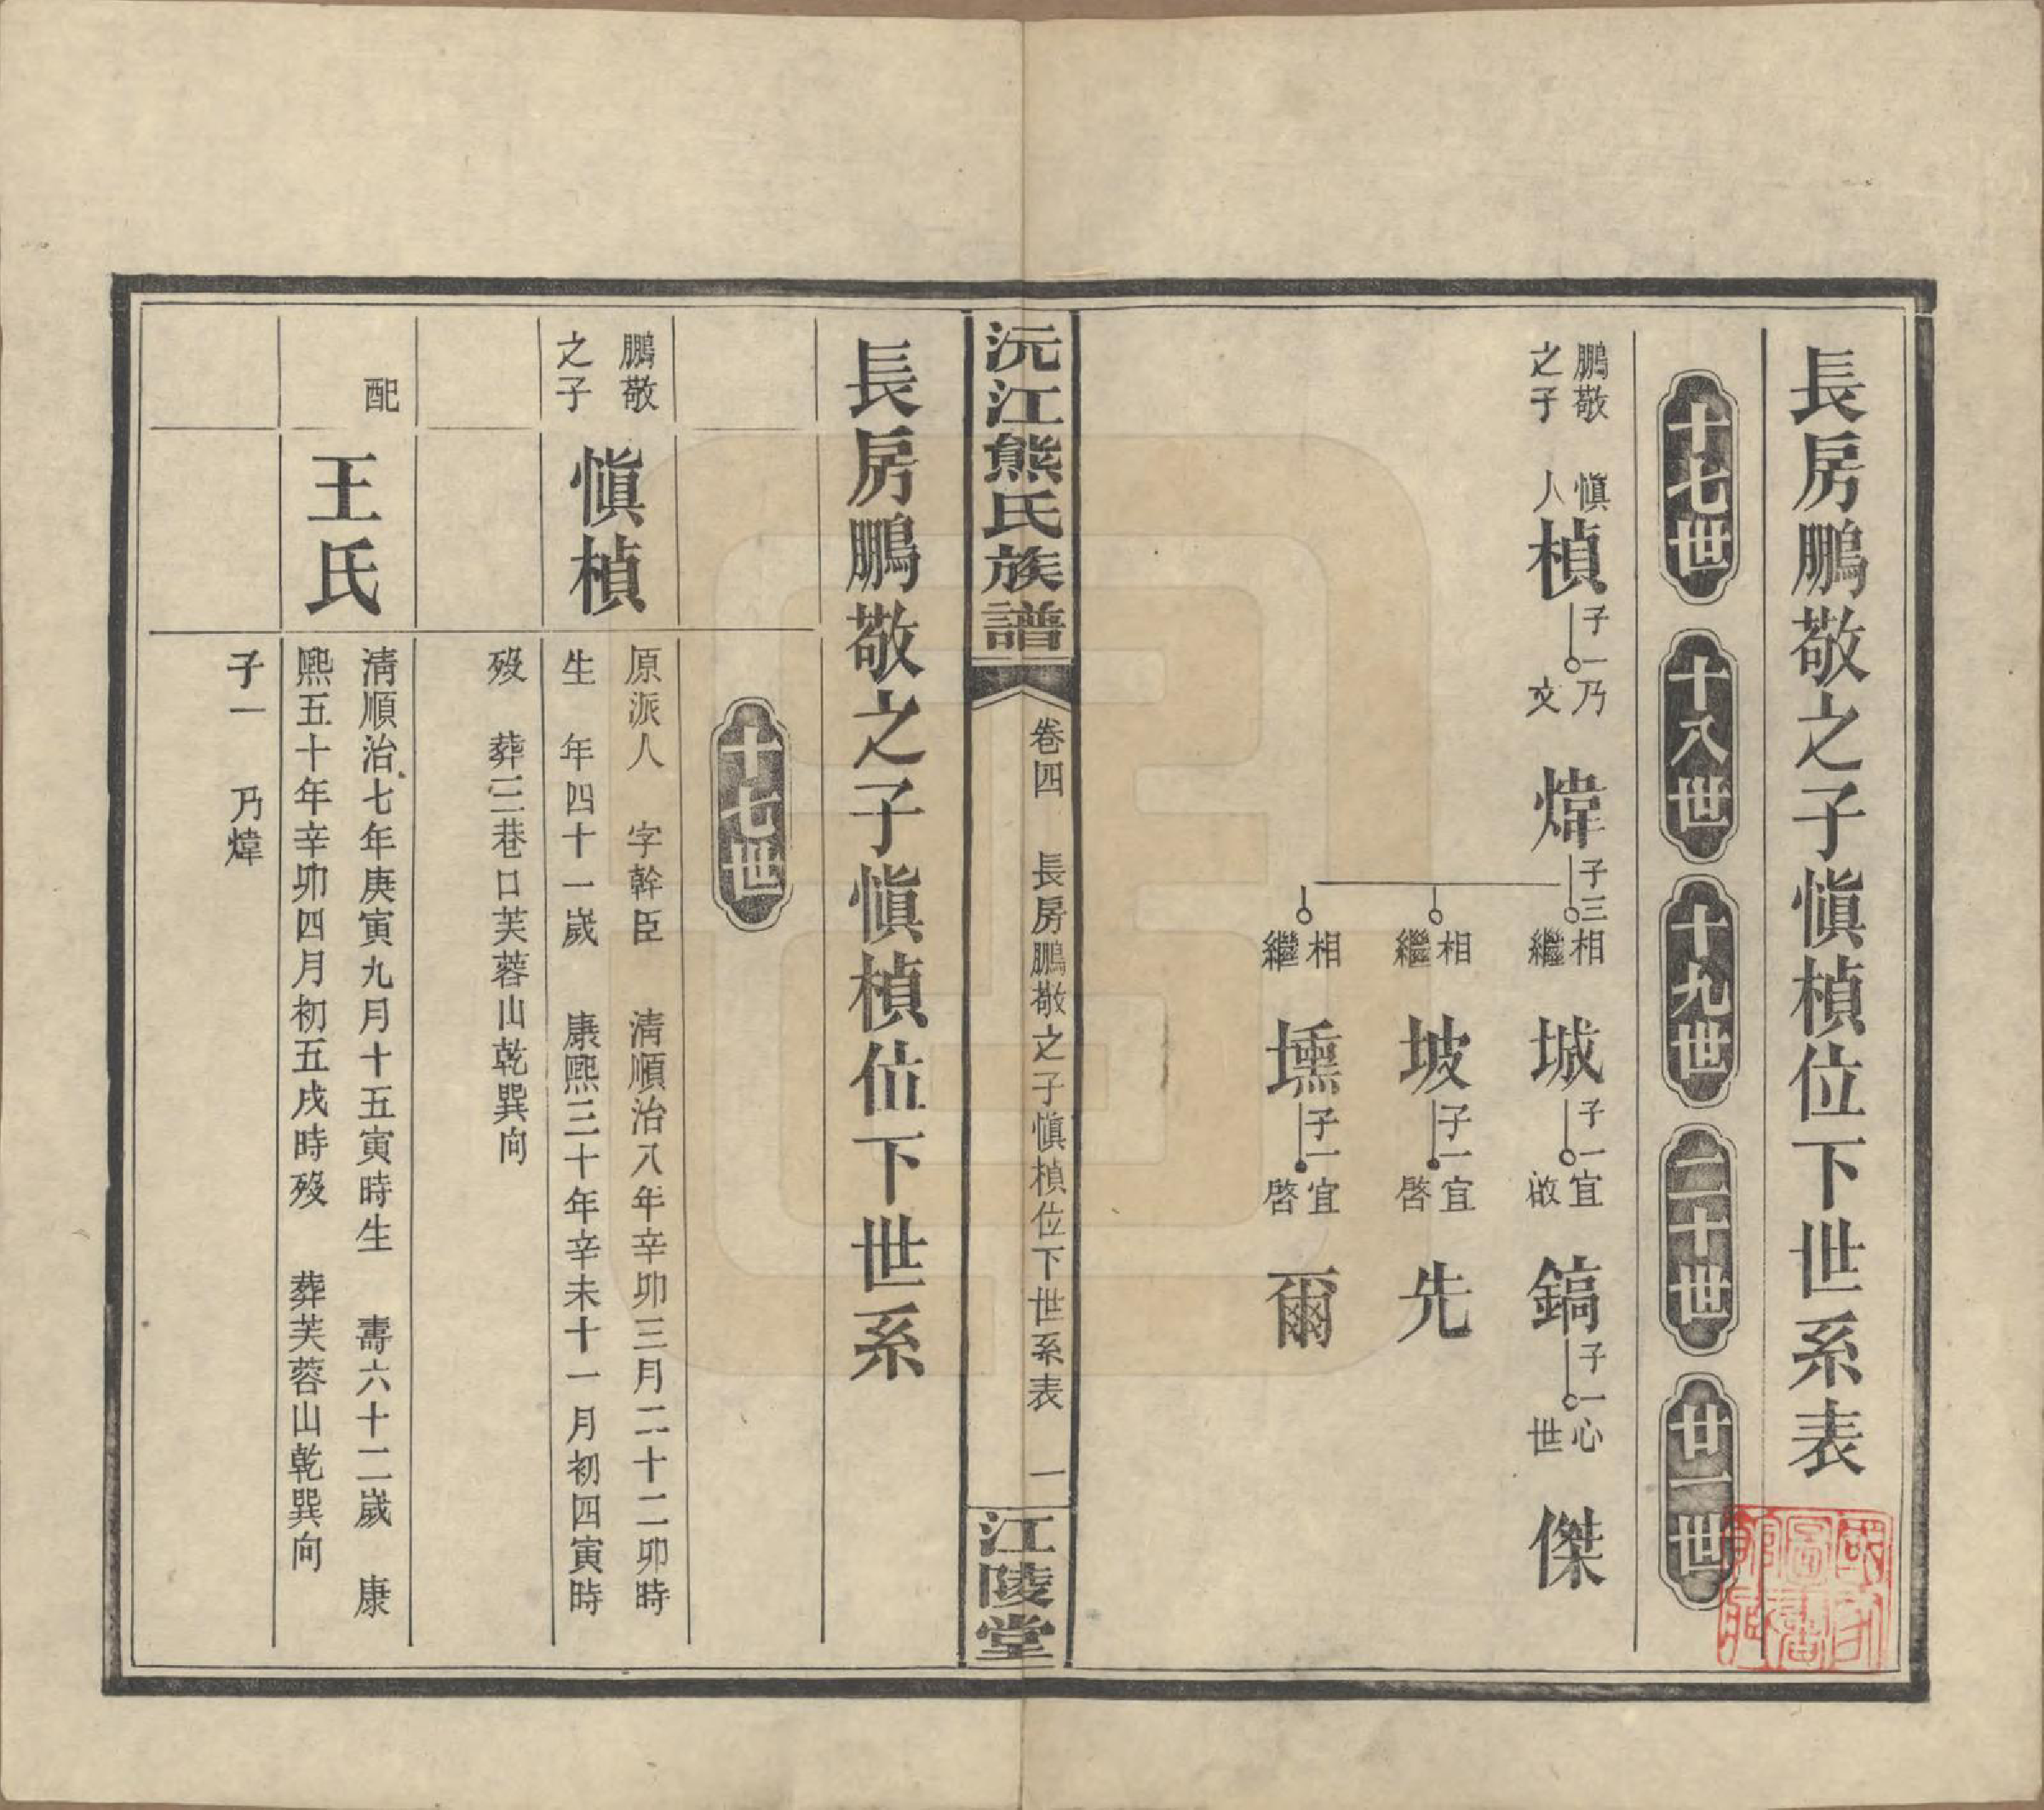 長房鵬敬之子愼楨位下世系表
十七世
十八世
十九世
二十世
廿一世
鵬敬之子
愼人
楨
子一
乃文
煒
子三
相繼
城
子一
宜啟
鎬
子一
心世
傑
相繼
坡
子一
宜啓
先
相繼
壎
子一
宜啓
爾
沅江熊氏族譜
卷四 長房鵬敬之子愼楨位下世系表 一
江陵堂
長房鵬敬之子愼楨位下世系
十七世
鵬敬之子
愼楨
原派人 字幹臣 清順治八年辛卯三月二十二卯時
生 年四十一歲 康熙三十年辛未十一月初四寅時
歿 葬三巷口芙蓉山乾巽向
配
王氏
清順治七年庚寅九月十五寅時生 壽六十二歲 康
熙五十年辛卯四月初五戌時歿 葬芙蓉山乾巽向
子一 乃煒